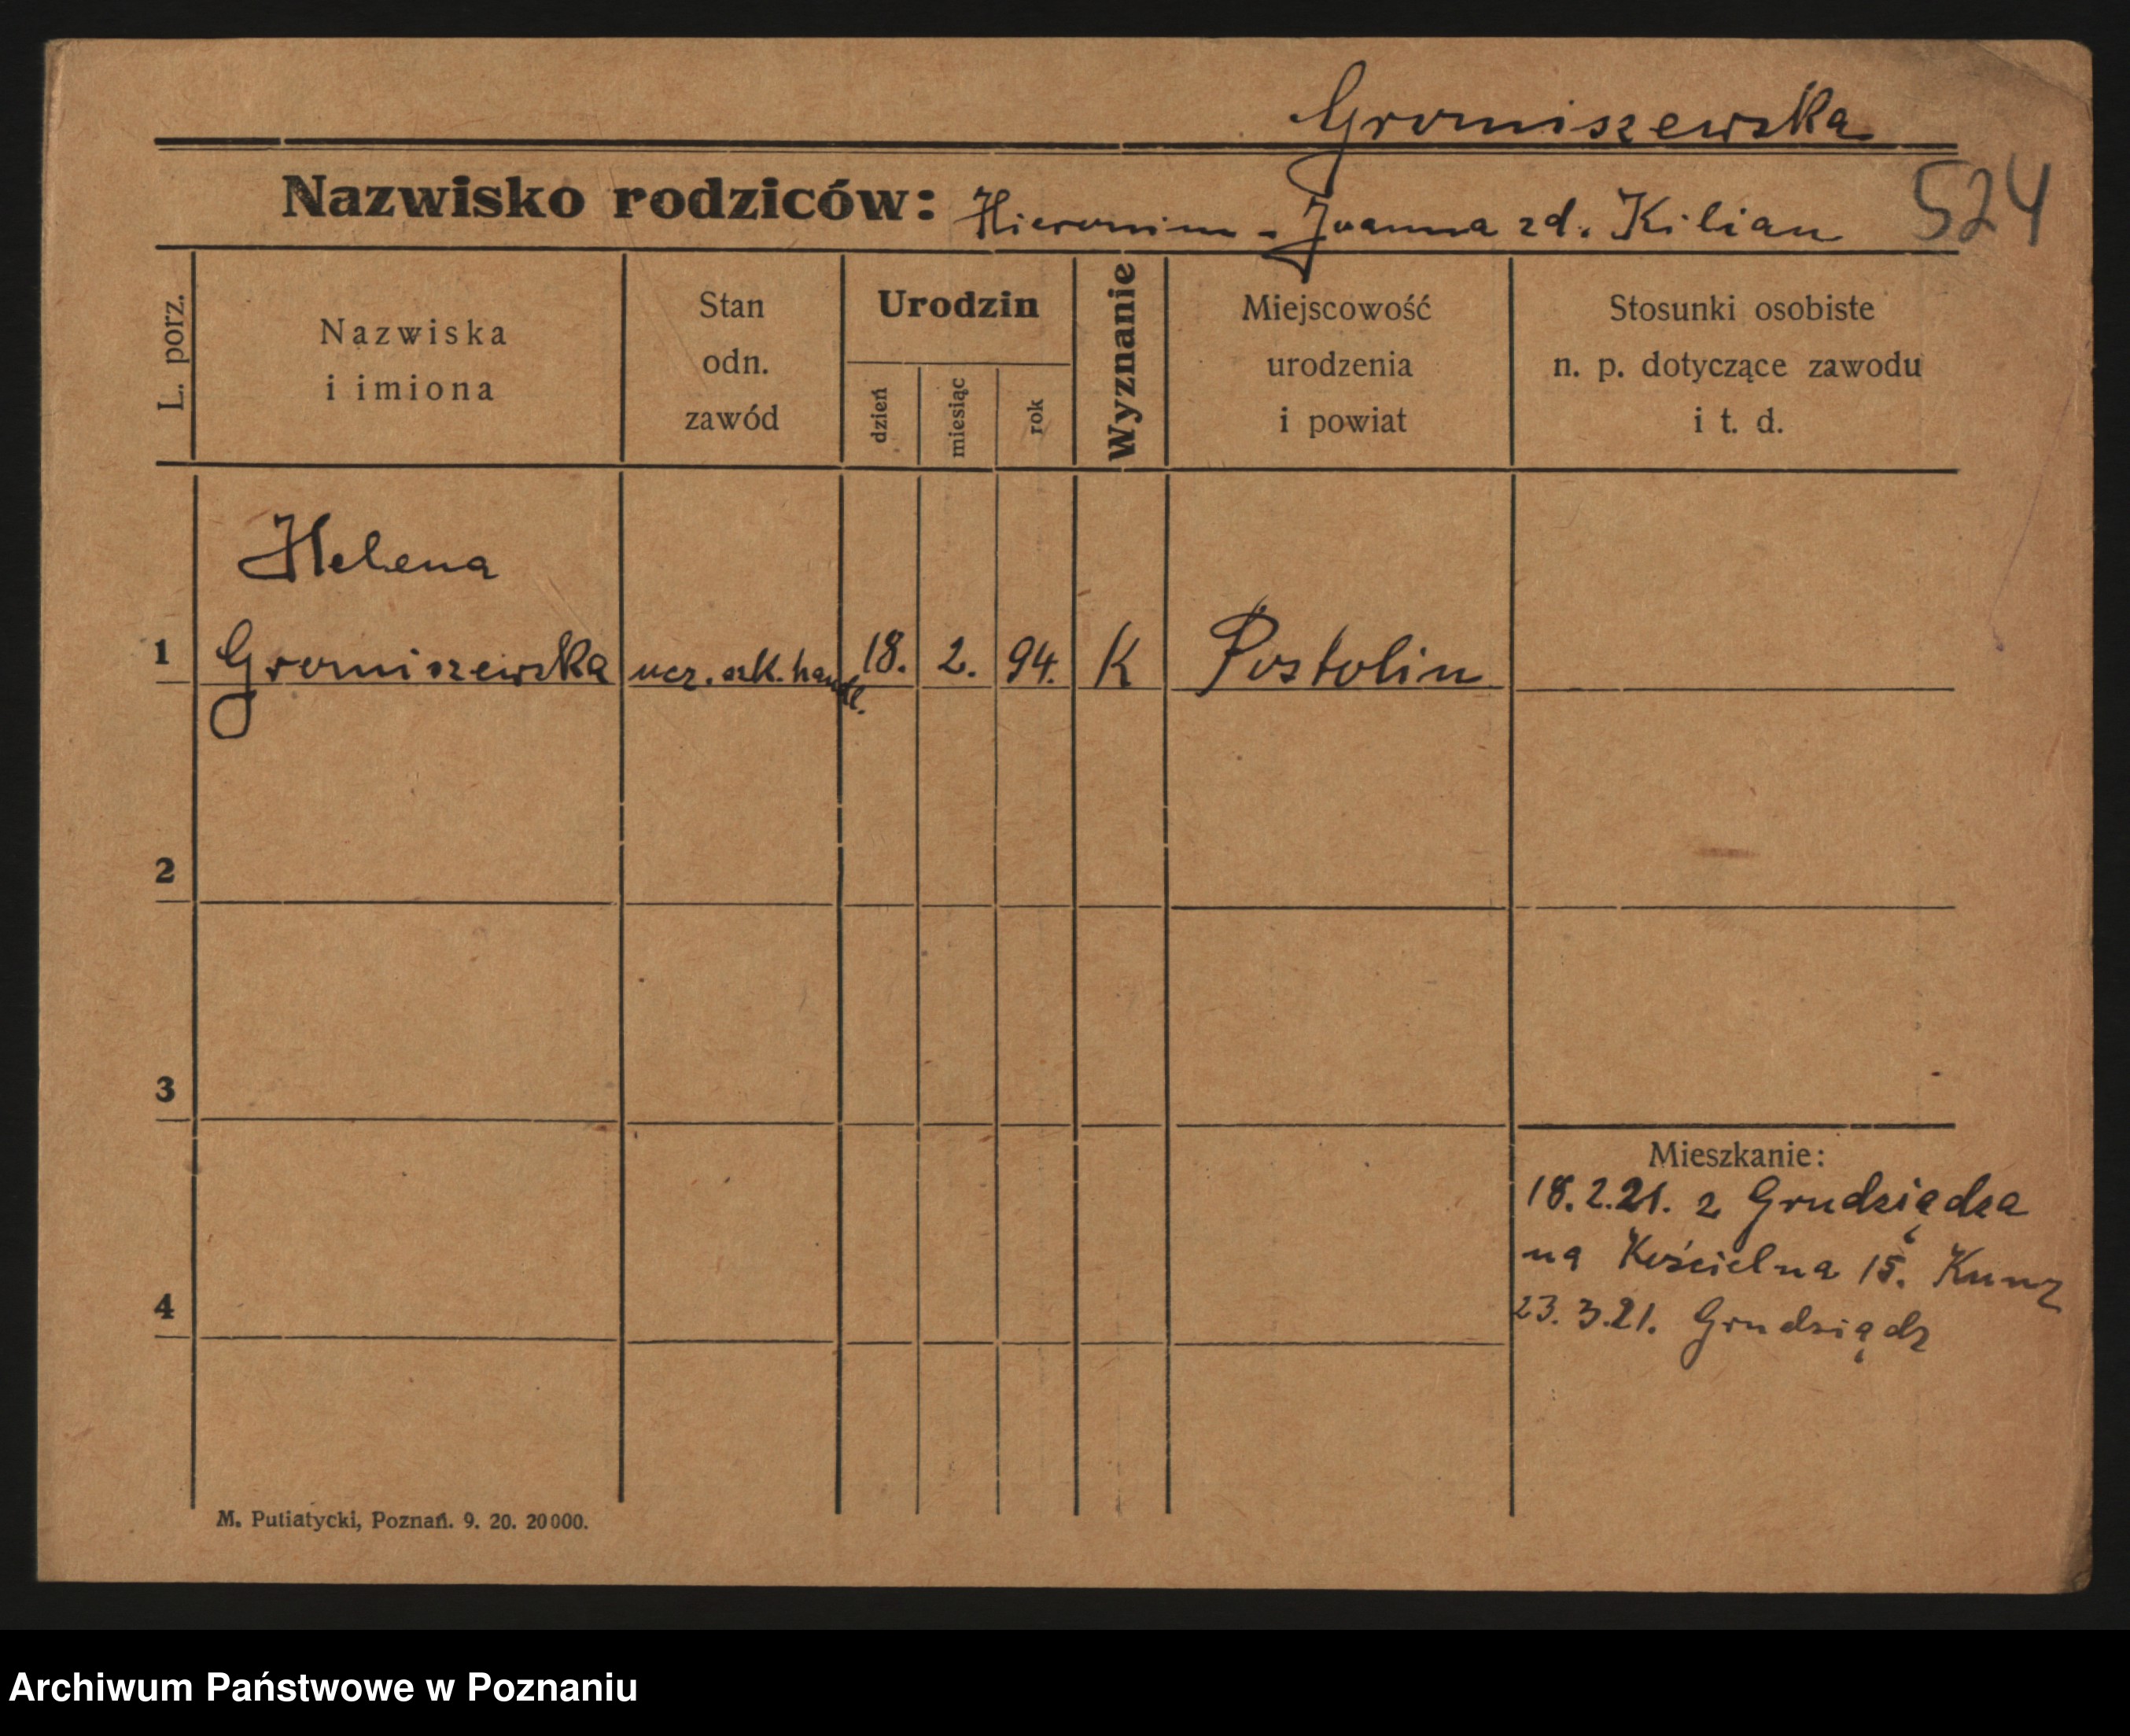 Gromiszewska
Nazwisko rodziców: Hieronim - Joanna zd. Kilian
524
L. porz.
Nazwiska
i imiona
Stan
odn.
zawód
Urodzin
dzień
miesiąc
rok
Wyznanie
Miejscowość
urodzenia
i powiat
Stosunki osobiste
n. p. dotyczące zawodu
i t. d.
Helena
1 Gromiszewska ucz. szk. handl. 18. 2. 94. K Postolin
2
3
Mieszkanie:
18.2.21. z Grudziądza
na Kościelna 15. Kunz
23.3.21. Grudziądz
4
M. Putiatycki, Poznań. 9. 20. 20000.
Archiwum Państwowe w Poznaniu